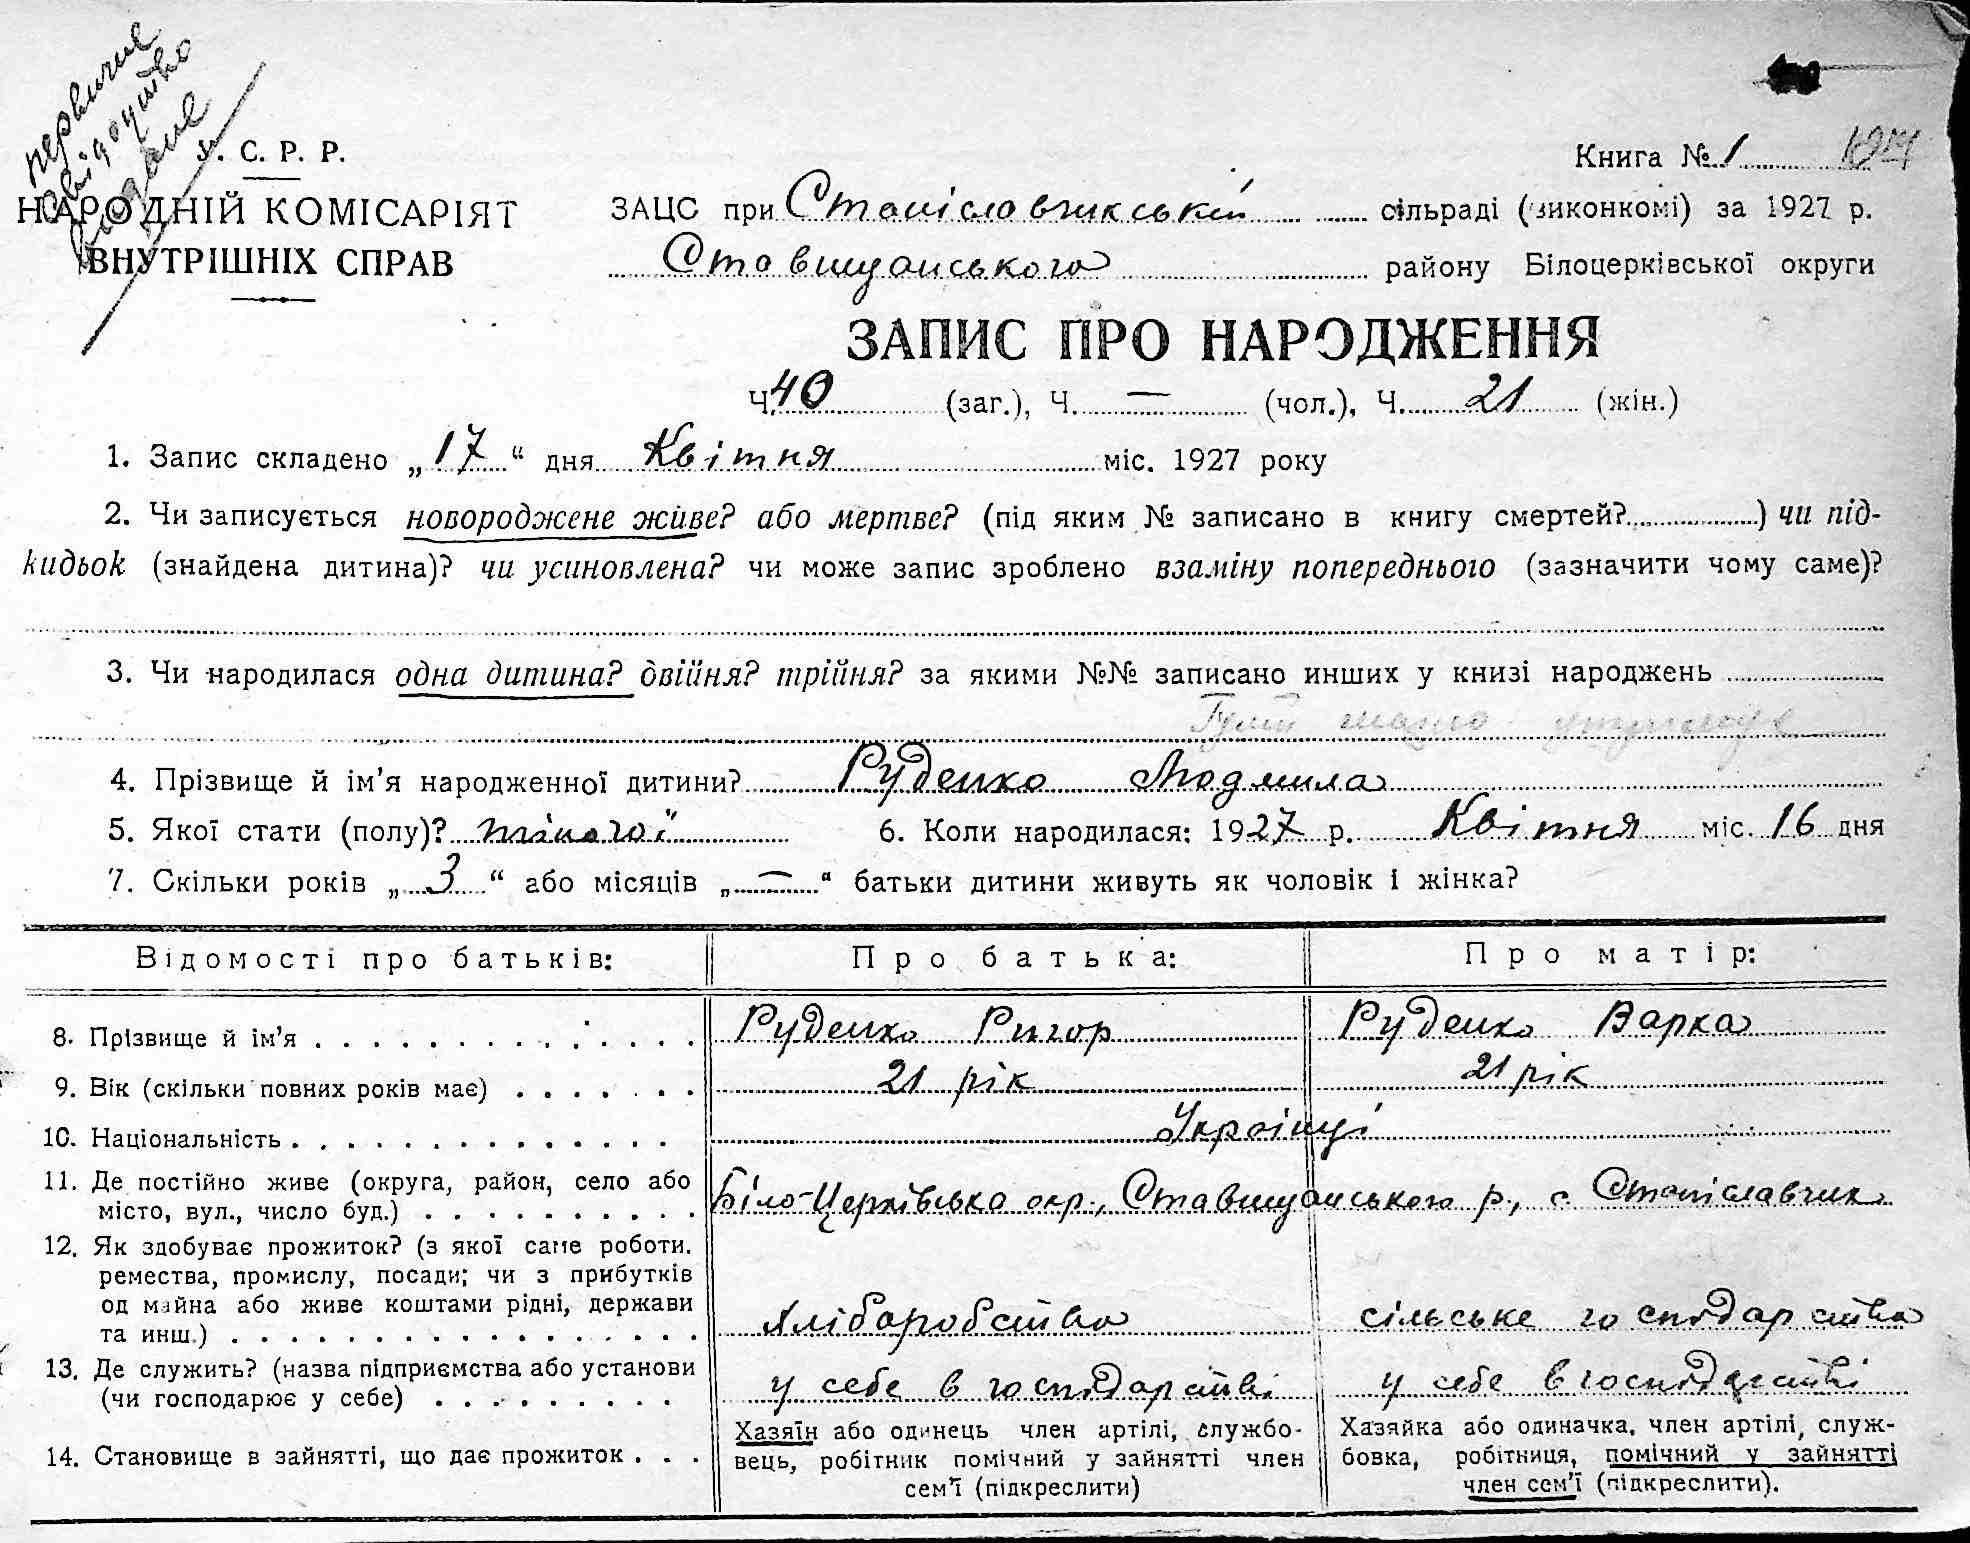 первичне
свідоцтво
видане
У. С. Р. Р.
НАРОДНІЙ КОМІСАРІЯТ
ВНУТРІШНІХ СПРАВ
Книга № 1
ЗАЦС при Станіславчикській сільраді (виконкомі) за 1927 р.
Ставищанського району Білоцерківської округи
ЗАПИС ПРО НАРОДЖЕННЯ
Ч. 40 (заг.), Ч. — (чол.), Ч. 21 (жін.)
1. Запис складено „ 17 “ дня Квітня міс. 1927 року
2. Чи записується новороджене живе? або мертве? (під яким № записано в книгу смертей? ) чи під-
кидьок (знайдена дитина)? чи усиновлена? чи може запис зроблено взаміну попереднього (зазначити чому саме)?
3. Чи народилася одна дитина? двійня? трійня? за якими №№ записано инших у книзі народжень
4. Прізвище й ім’я народженної дитини? Руденко Людмила
5. Якої стати (полу)? жіночої 6. Коли народилася: 1927 р. Квітня міс. 16 дня
7. Скільки років „ 3 “ або місяців „ — “ батьки дитини живуть як чоловік і жінка?
Відомості про батьків: Про батька: Про матір:
8. Прізвище й ім’я Руденко Ригор Руденко Варка
9. Вік (скільки повних років має) 21 рік 21 рік
10. Національність Українці
11. Де постійно живе (округа, район, село або
місто, вул., число буд.) Біло-Церківська окр., Ставищанського р., с. Станіславчик
12. Як здобуває прожиток? (з якої саме роботи,
ремества, промислу, посади; чи з прибутків
од майна або живе коштами рідні, держави
та инш.) Хліборобство сільське господарство
13. Де служить? (назва підприємства або установи
(чи господарює у себе) у себе в господарстві у себе в господарстві
14. Становище в зайнятті, що дає прожиток
Хазяїн або одинець член артілі, службо-
вець, робітник помічний у зайнятті член
сем’ї (підкреслити)
Хазяйка або одиначка, член артілі, служ-
бовка, робітниця, помічний у зайнятті
член сем’ї (підкреслити).